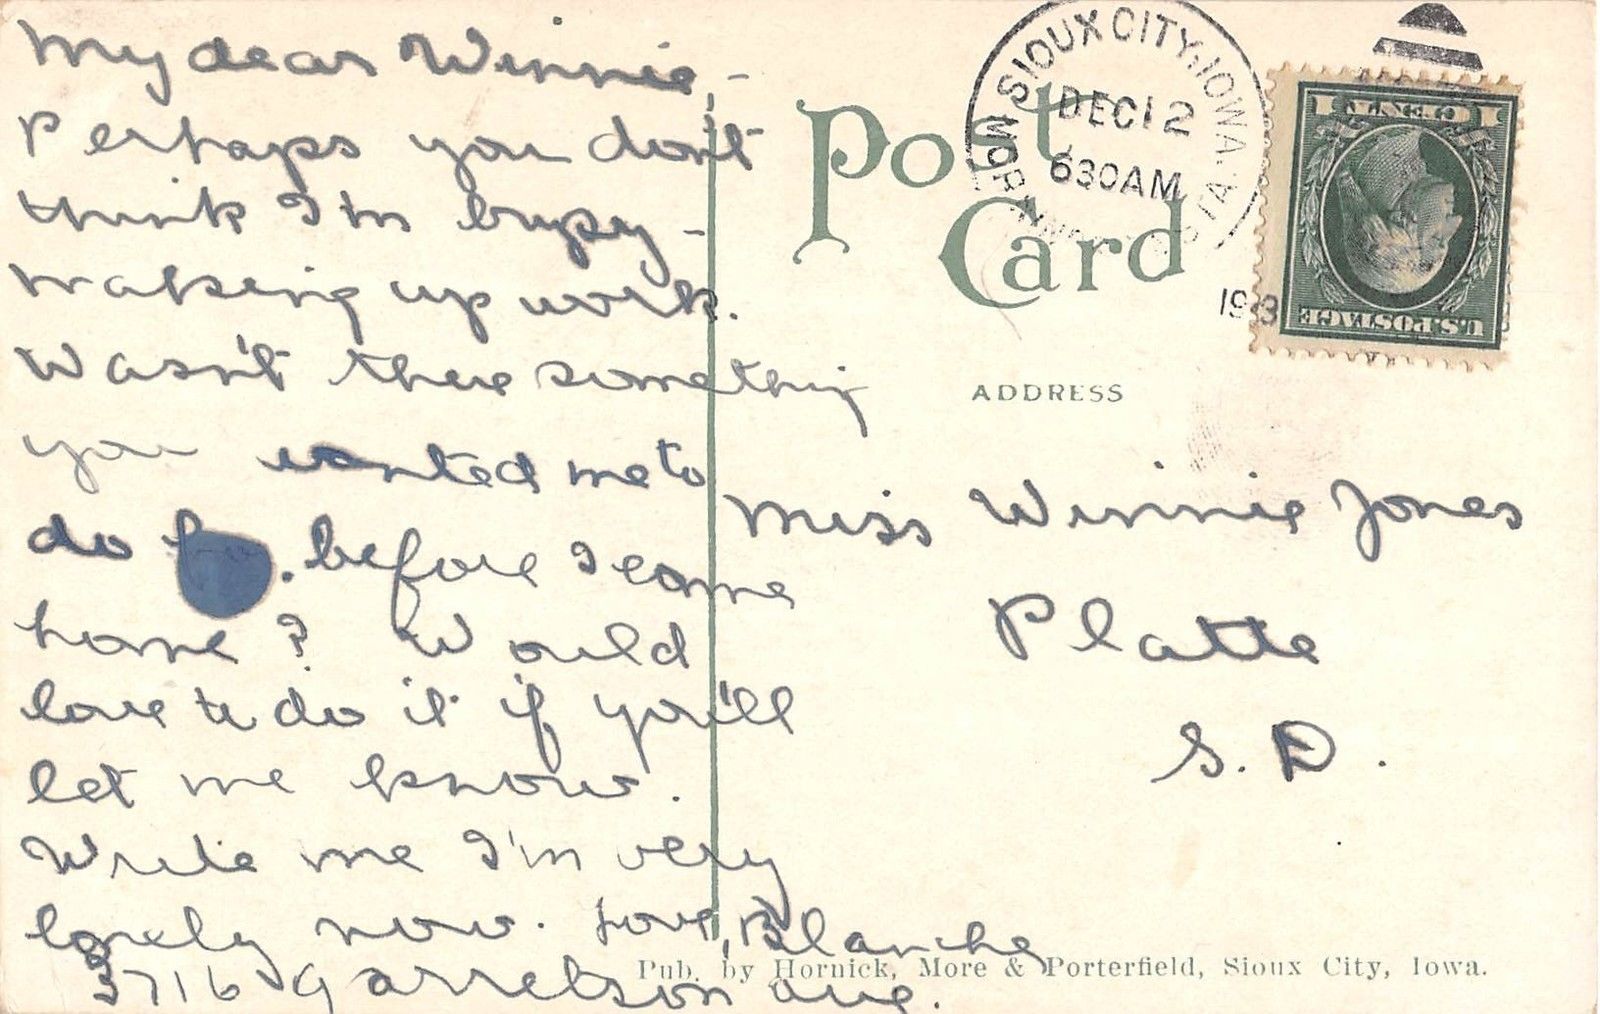 My dear Winnie,-
Perhaps you don't
think I'm busy -
making up work.
Wasn't there something
you wanted me to
do before I come
home? Would
love to do it if you'll
let me know.
Write me I'm very
lonely now. Love, Blanche
3716 Garretson Ave.
Post
Card
SIOUX CITY, IOWA.
DEC 12
630AM
MORNINGSIDE STA.
1913
U.S. POSTAGE
ADDRESS
Miss Winnie Jones
Platte
S. D.
Pub. by Hornick, More & Porterfield, Sioux City, Iowa.